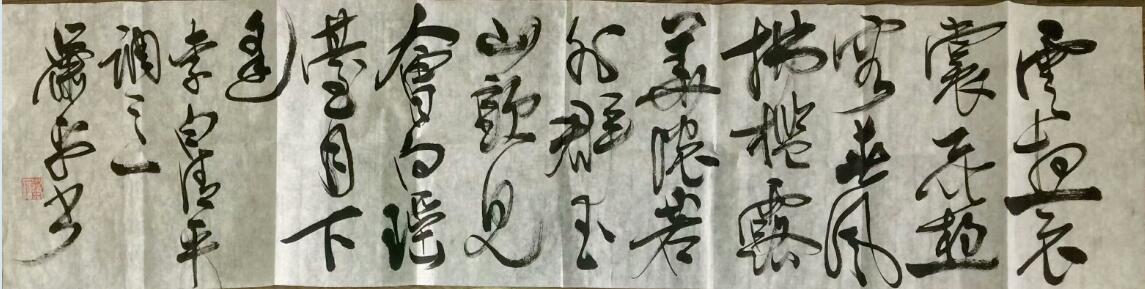 雲想衣
裳花想
容春風
拂檻露
華濃若
非群玉
山頭見
會向瑤
臺月下
逢
李白清平
調之一
書